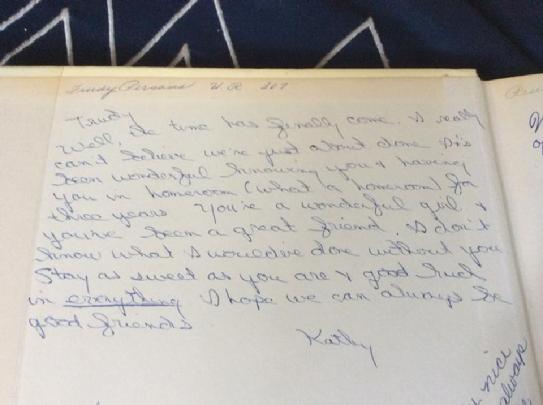 Trudy Persons H.R. 207
Trudy
Well, the time has finally come. I really
can't believe we're just about done. It's
been wonderful knowing you & having
you in homeroom (what a homeroom) for
three years. You're a wonderful girl &
you've been a great friend. I don't
know what I would've done without you
Stay as sweet as you are & good luck
in everything I hope we can always be
good friends
Kathy
nice
always